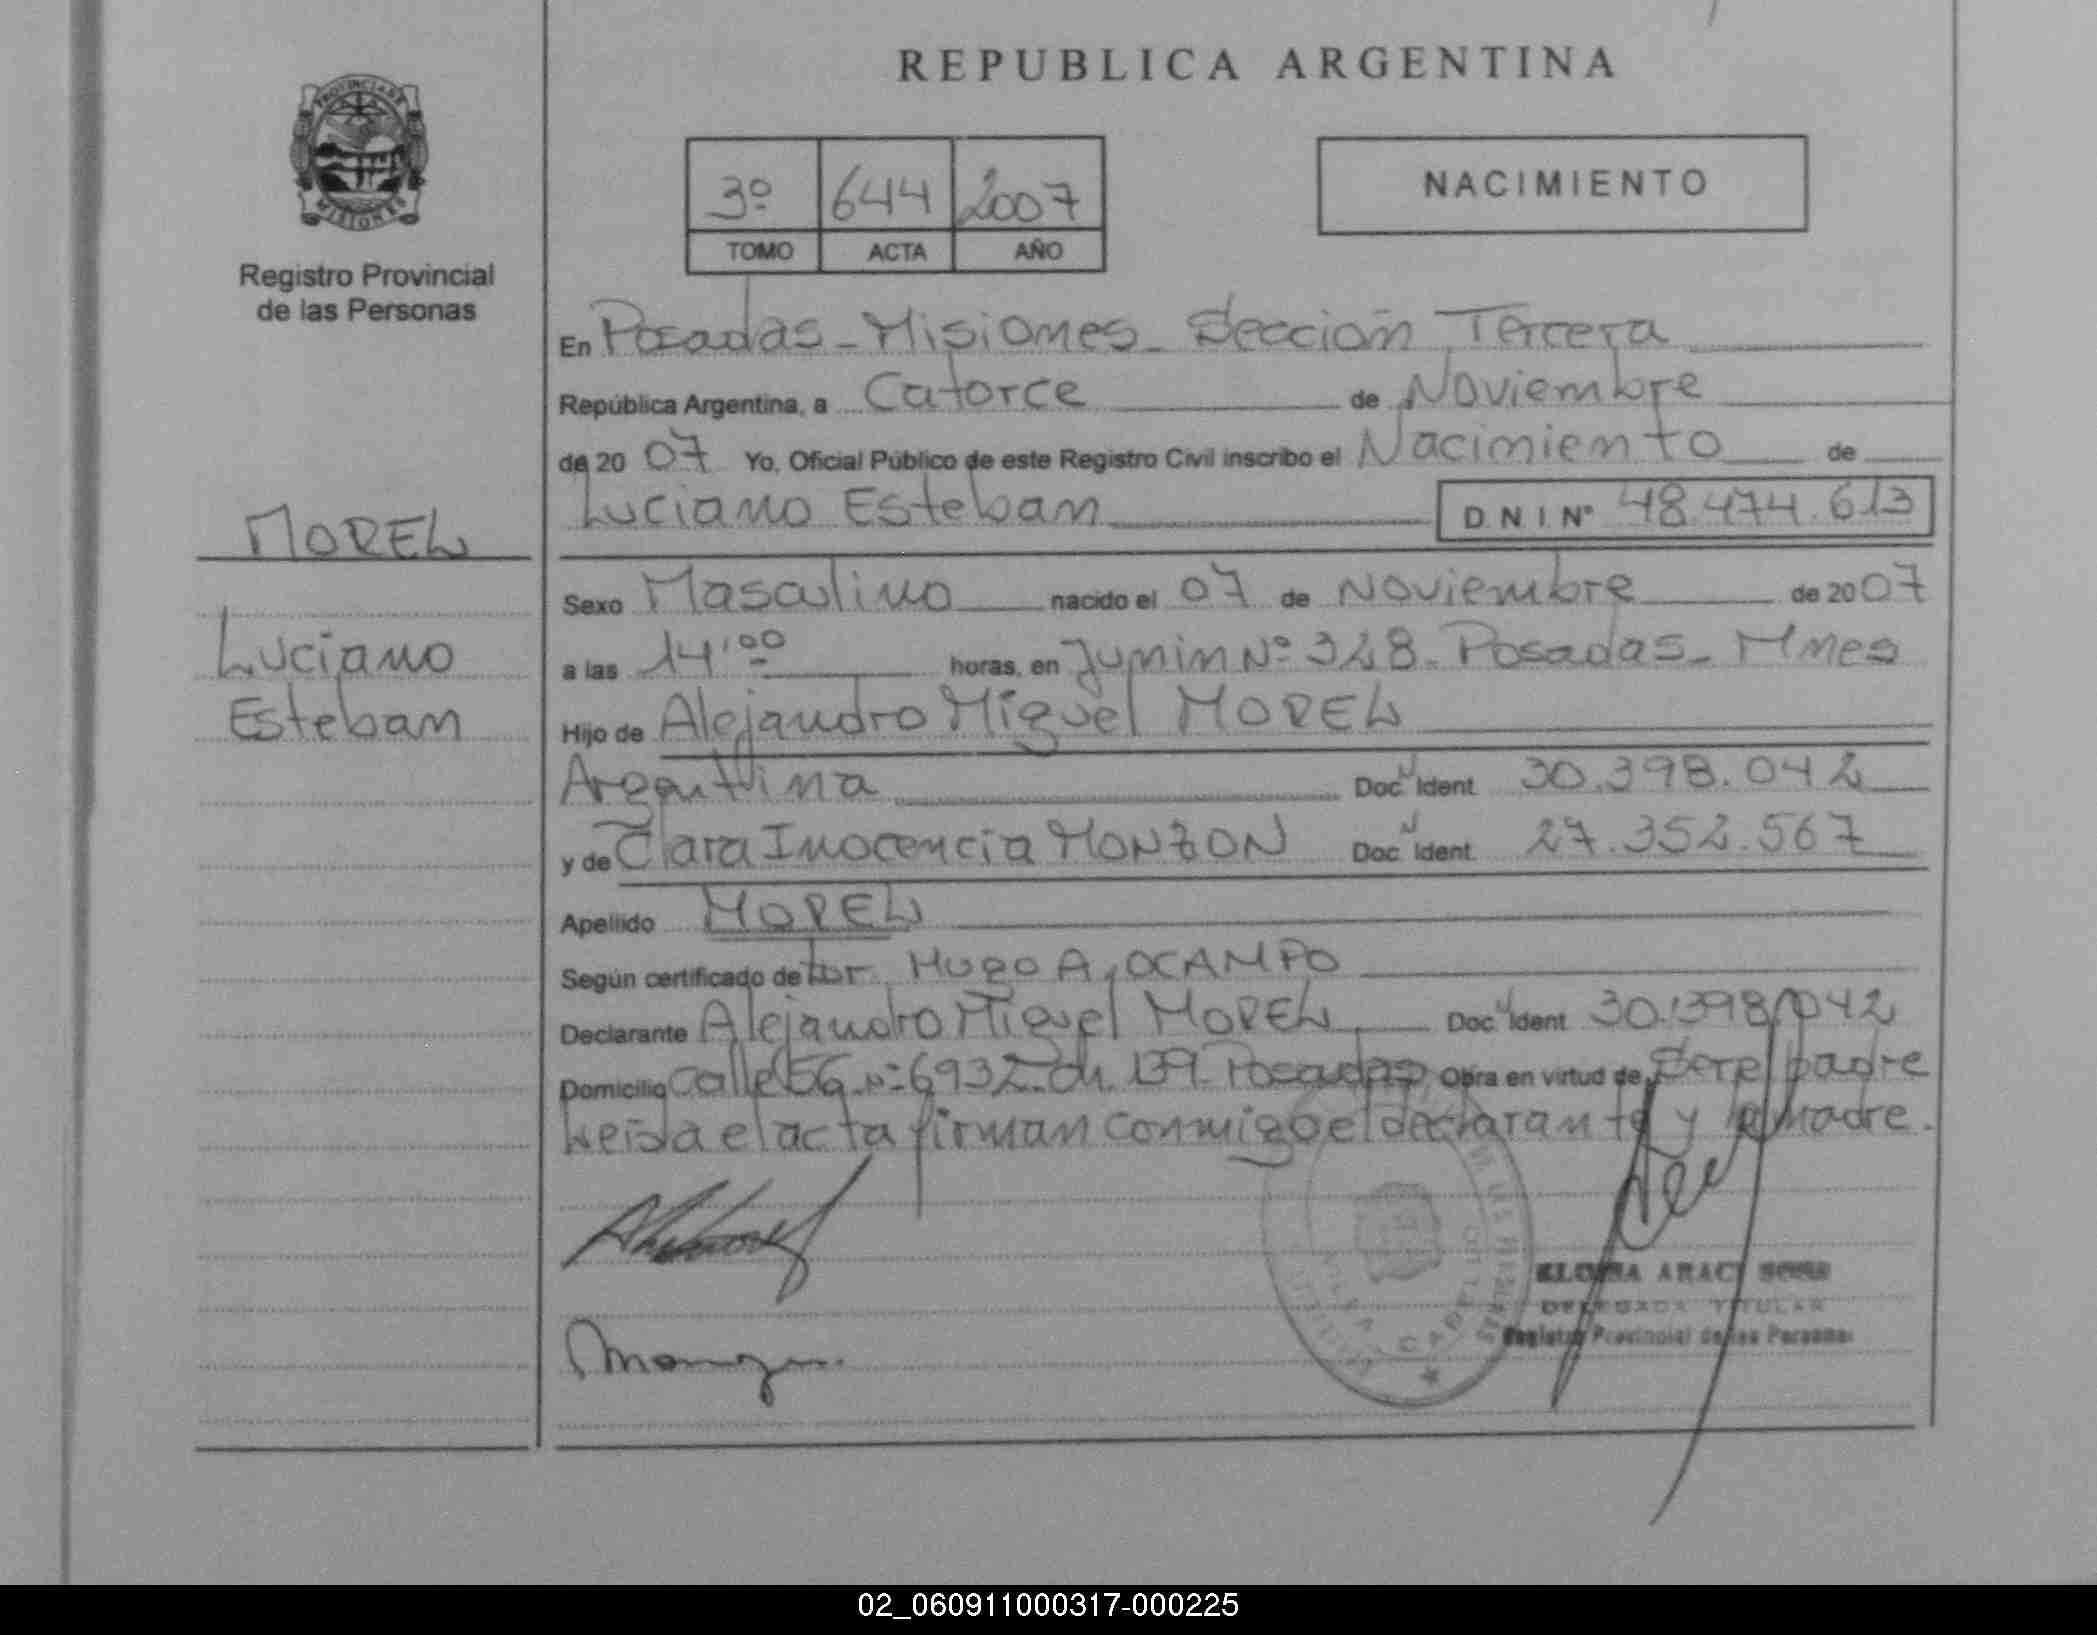 REPUBLICA ARGENTINA
PROVINCIA DE
MISIONES
Registro Provincial
de las Personas
3º 644 2007
TOMO ACTA AÑO
NACIMIENTO
En Posadas - Misiones - Sección Tercera
República Argentina, a Catorce de Noviembre
de 20 07 Yo, Oficial Público de este Registro Civil inscribo el Nacimiento de
Luciano Esteban D N I Nº 48.474.613
MOREL
Sexo Masculino nacido el 07 de Noviembre de 20 07
Luciano
a las 14'00 horas, en Junin Nº 328 - Posadas - Mnes
Esteban
Hijo de Alejandro Miguel MOREL
Argentina Doc N Ident 30.398.042
y de Clara Inocencia MONZON Doc N Ident 27.352.567
Apellido MOREL
Según certificado de Hugo A. OCAMPO
Declarante Alejandro Miguel MOREL Doc N Ident 30.398.042
Domicilio Calle 56 Nº 6932 - Ch. 139 - Posadas Obra en virtud de Ser el padre
Leida el acta firman conmigo el declarante y la madre.
DELEGADA TITULAR
Registro Provincial de las Personas
02_060911000317-000225